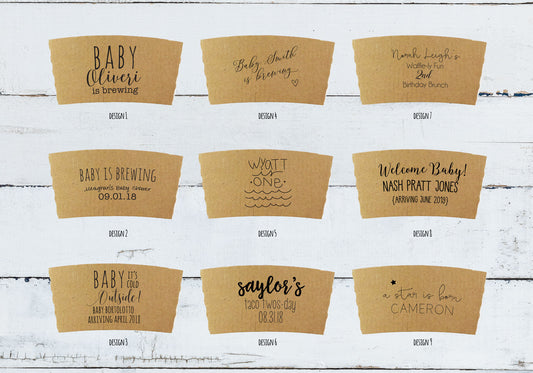 BABY
Oliveri
is brewing
DESIGN 1
Baby Smith
is brewing...
DESIGN 4
Norah Leigh's
Waffle-ly Fun
2nd
Birthday Brunch
DESIGN 7
BABY IS BREWING
Baby Shower
09.01.18
DESIGN 2
WYATT
is
ONE
DESIGN 5
Welcome Baby!
NASH PRATT JONES
(ARRIVING JUNE 2019)
DESIGN 8
BABY IT'S
COLD
Outside!
BABY BORTOLOTTO
ARRIVING APRIL 2018
DESIGN 3
saylor's
taco twos-day
08.31.18
DESIGN 6
a star is born
CAMERON
DESIGN 9